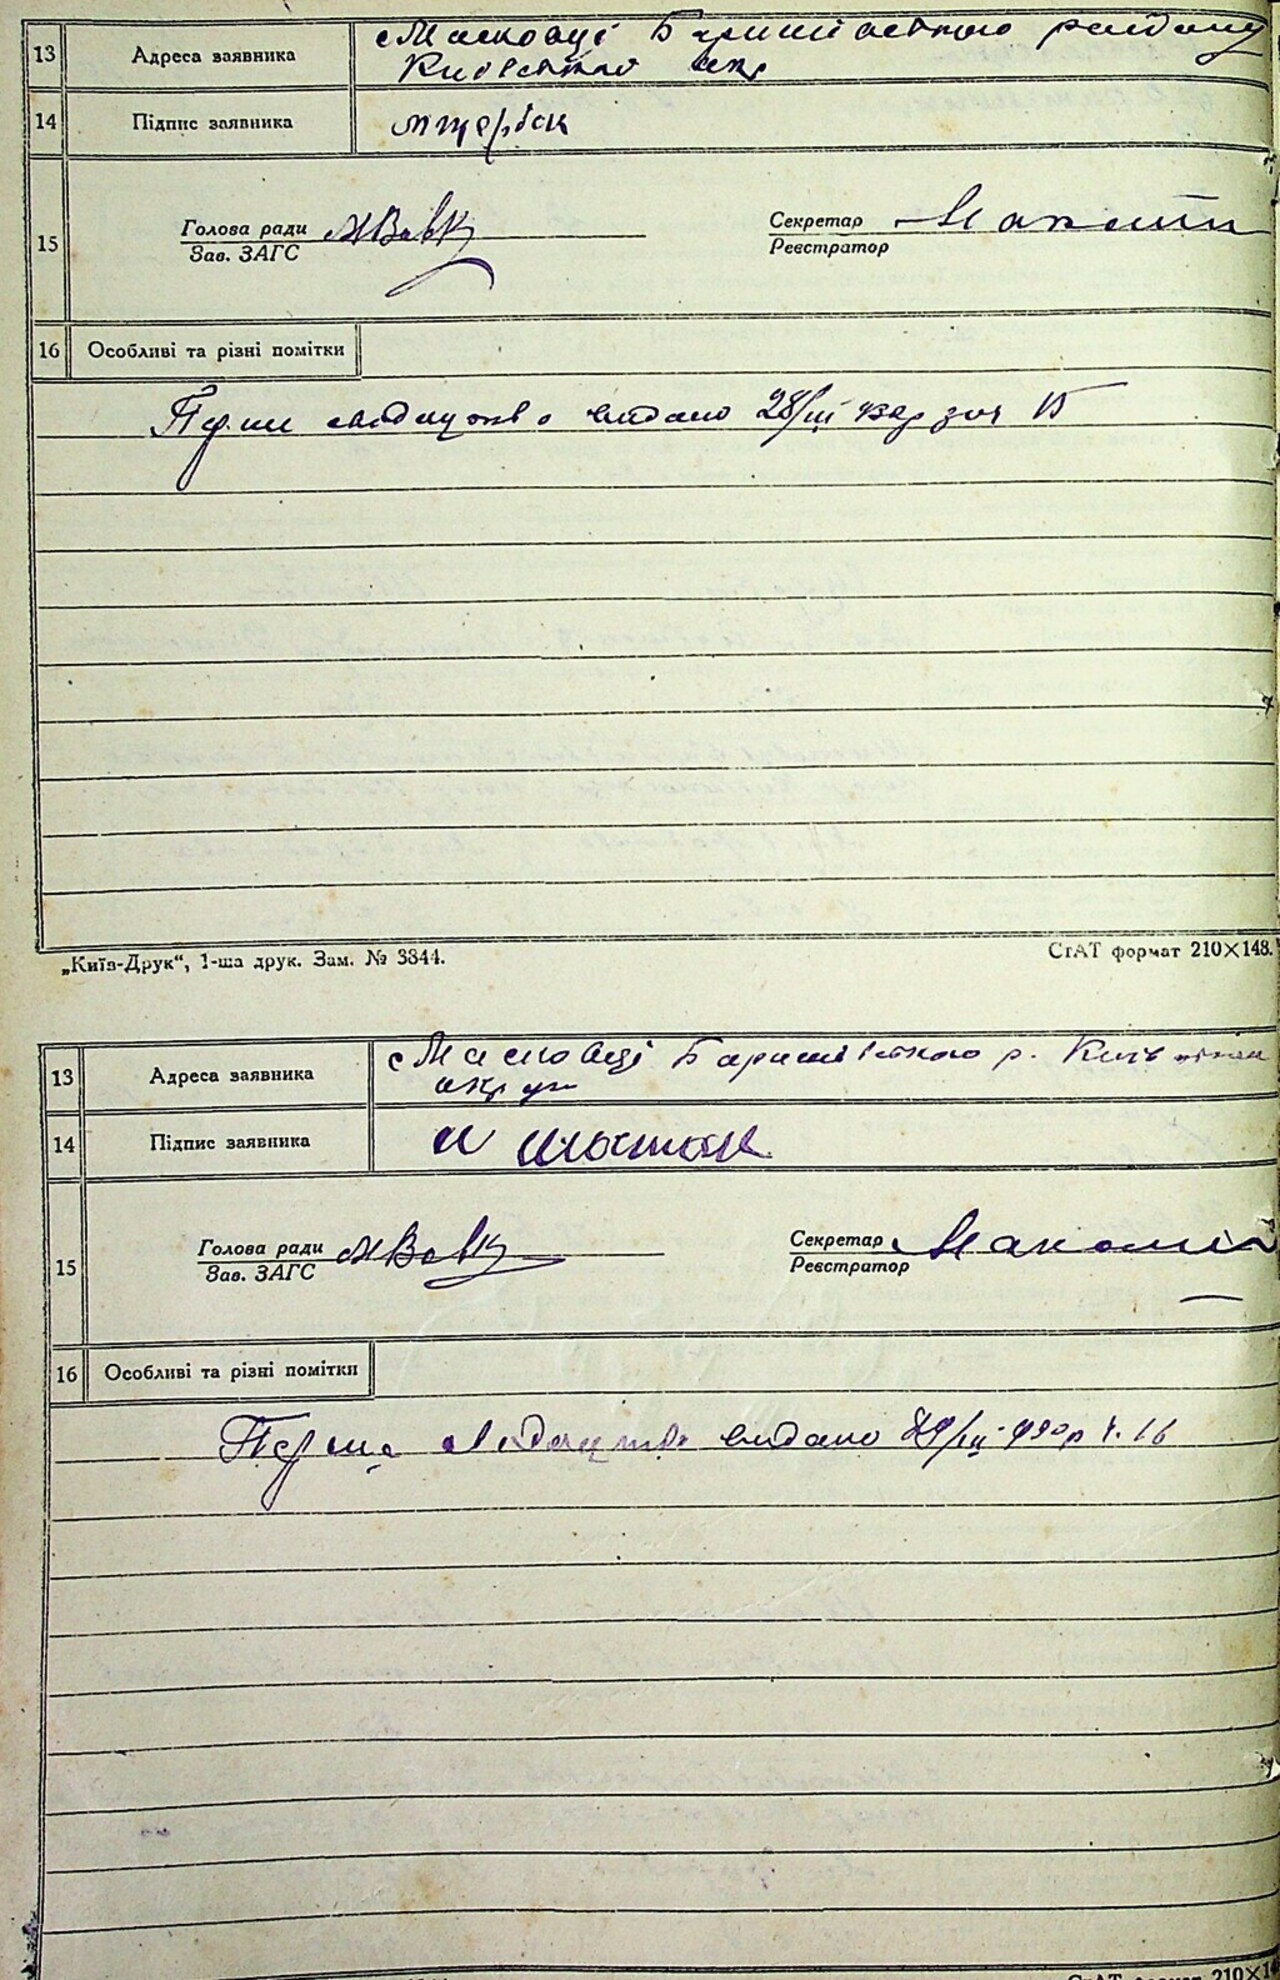 13 Адреса заявника с Масковці Баришівського району
Київської окр
14 Підпис заявника М Щербак
15 Голова ради МВовк Секретар
Зав. ЗАГС Реєстратор
16 Особливі та різні помітки
Перше свідоцтво видано 28/III 15
„Київ-Друк“, 1-ша друк. Зам. № 3344. СтАТ формат 210×148.
13 Адреса заявника с Масковці Баришівського р. Київ
округи
14 Підпис заявника
15 Голова ради МВовк Секретар
Зав. ЗАГС Реєстратор
16 Особливі та різні помітки
Перше свідоцтво видано 29/III-930р ч. 16
СтАТ формат